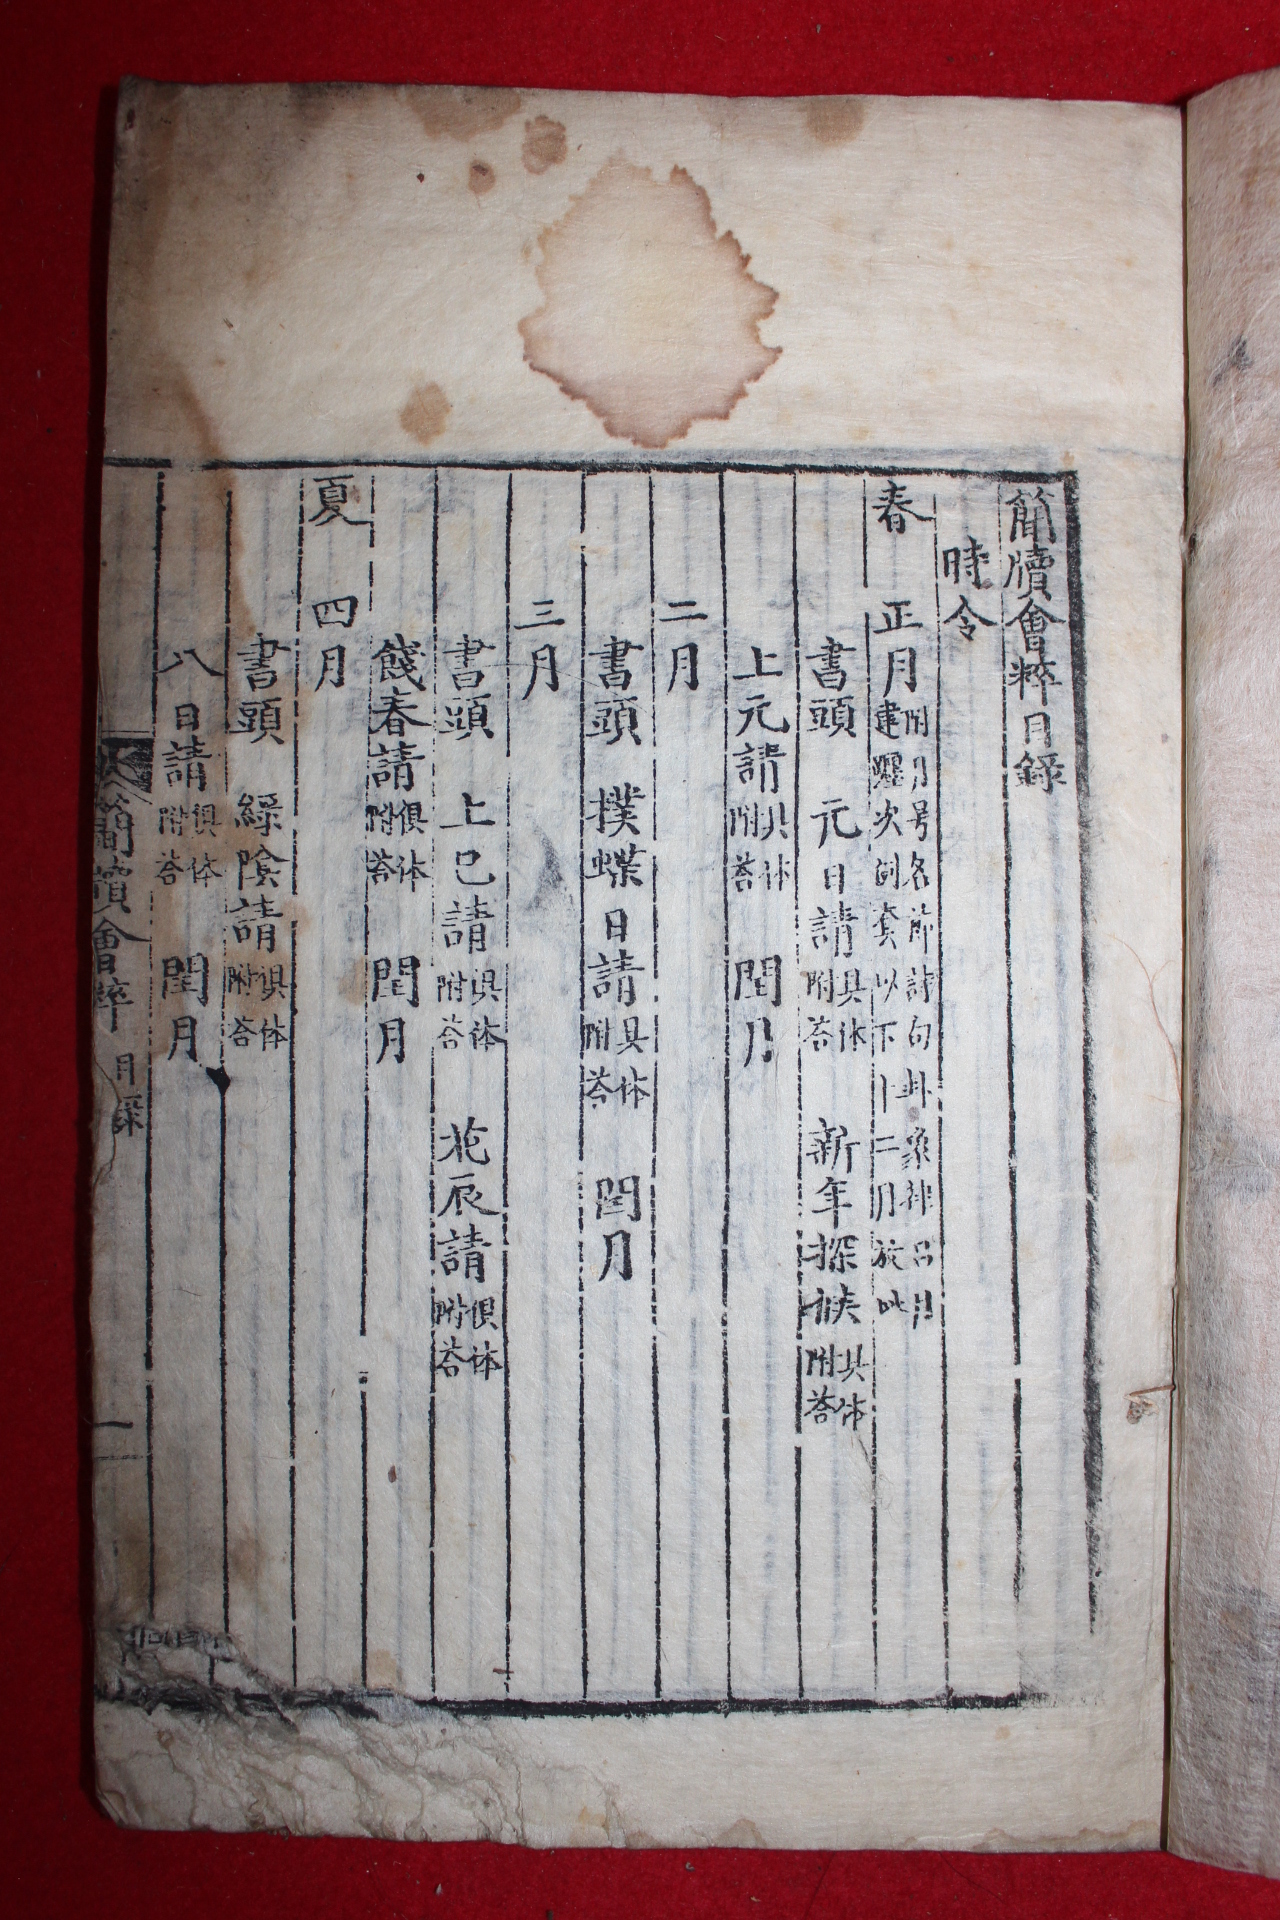 簡牘會粹目錄
時令
春 正月 附月号名節詩句卦象律呂日
建躔次創套以下十二月放此
書頭 元日請 具体附答 新年探候 具体附答
上元請 具体附答 閏月
二月
書頭 撲蝶日請 具体附答 閏月
三月
書頭 上巳請 俱体附答 花辰請 俱体附答
餞春請 俱体附答 閏月
夏 四月
書頭 綠陰請 俱体附答
八日請 俱体附答 閏月
簡牘會粹 目錄 一